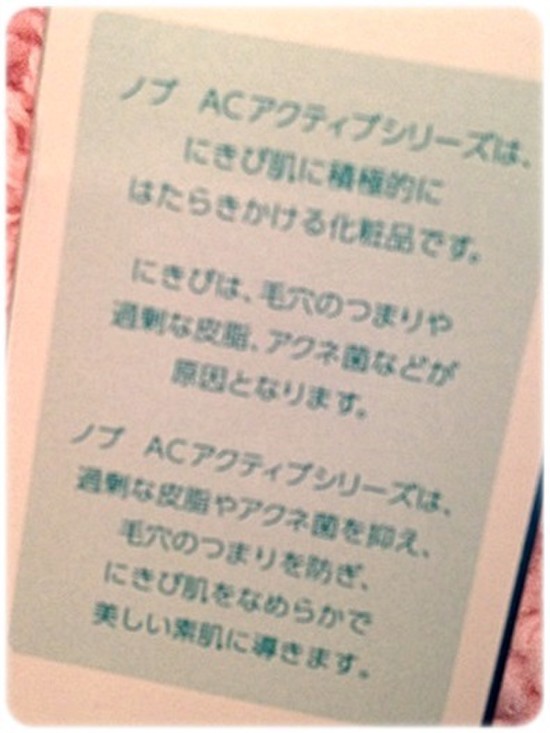 ノブ ACアクティブシリーズは、
にきび肌に積極的に
はたらきかける化粧品です。
にきびは、毛穴のつまりや
過剰な皮脂、アクネ菌などが
原因となります。
ノブ ACアクティブシリーズは、
過剰な皮脂やアクネ菌を抑え、
毛穴のつまりを防ぎ、
にきび肌をなめらかで
美しい素肌に導きます。